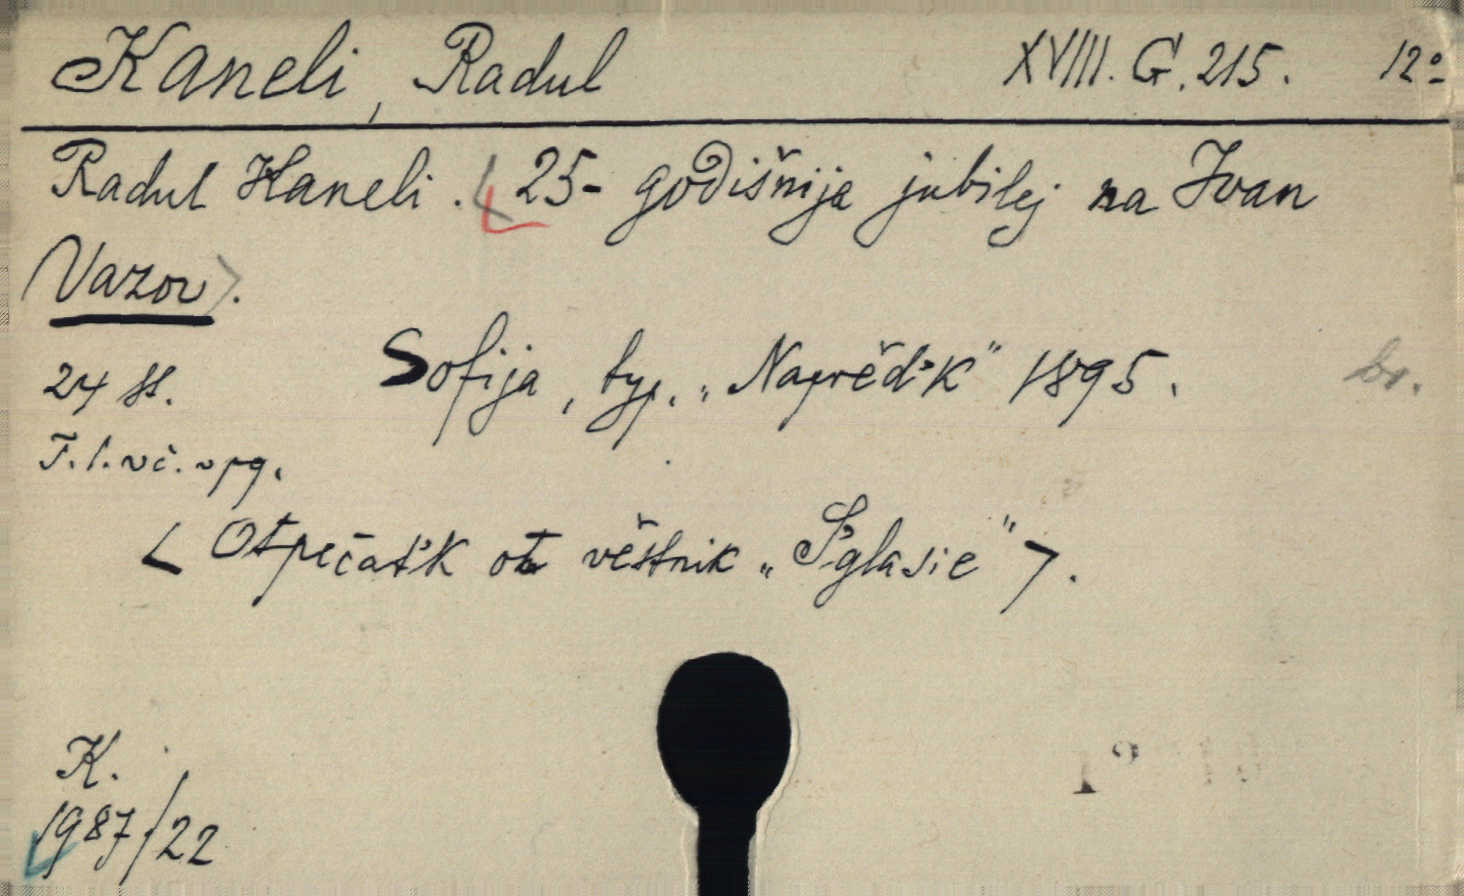 Kaneli, Radul XVIII. G. 215. 12º
Radul Kaneli. < 25-godišnija jubilej na Ivan
Vazov>.
24 ss. Sofija, typ. „Naprěd'k" 1895. br.
T. l. vč. v pg.
< Otpečat'k ot věstnik „S'glasie" >.
K.
1987/22